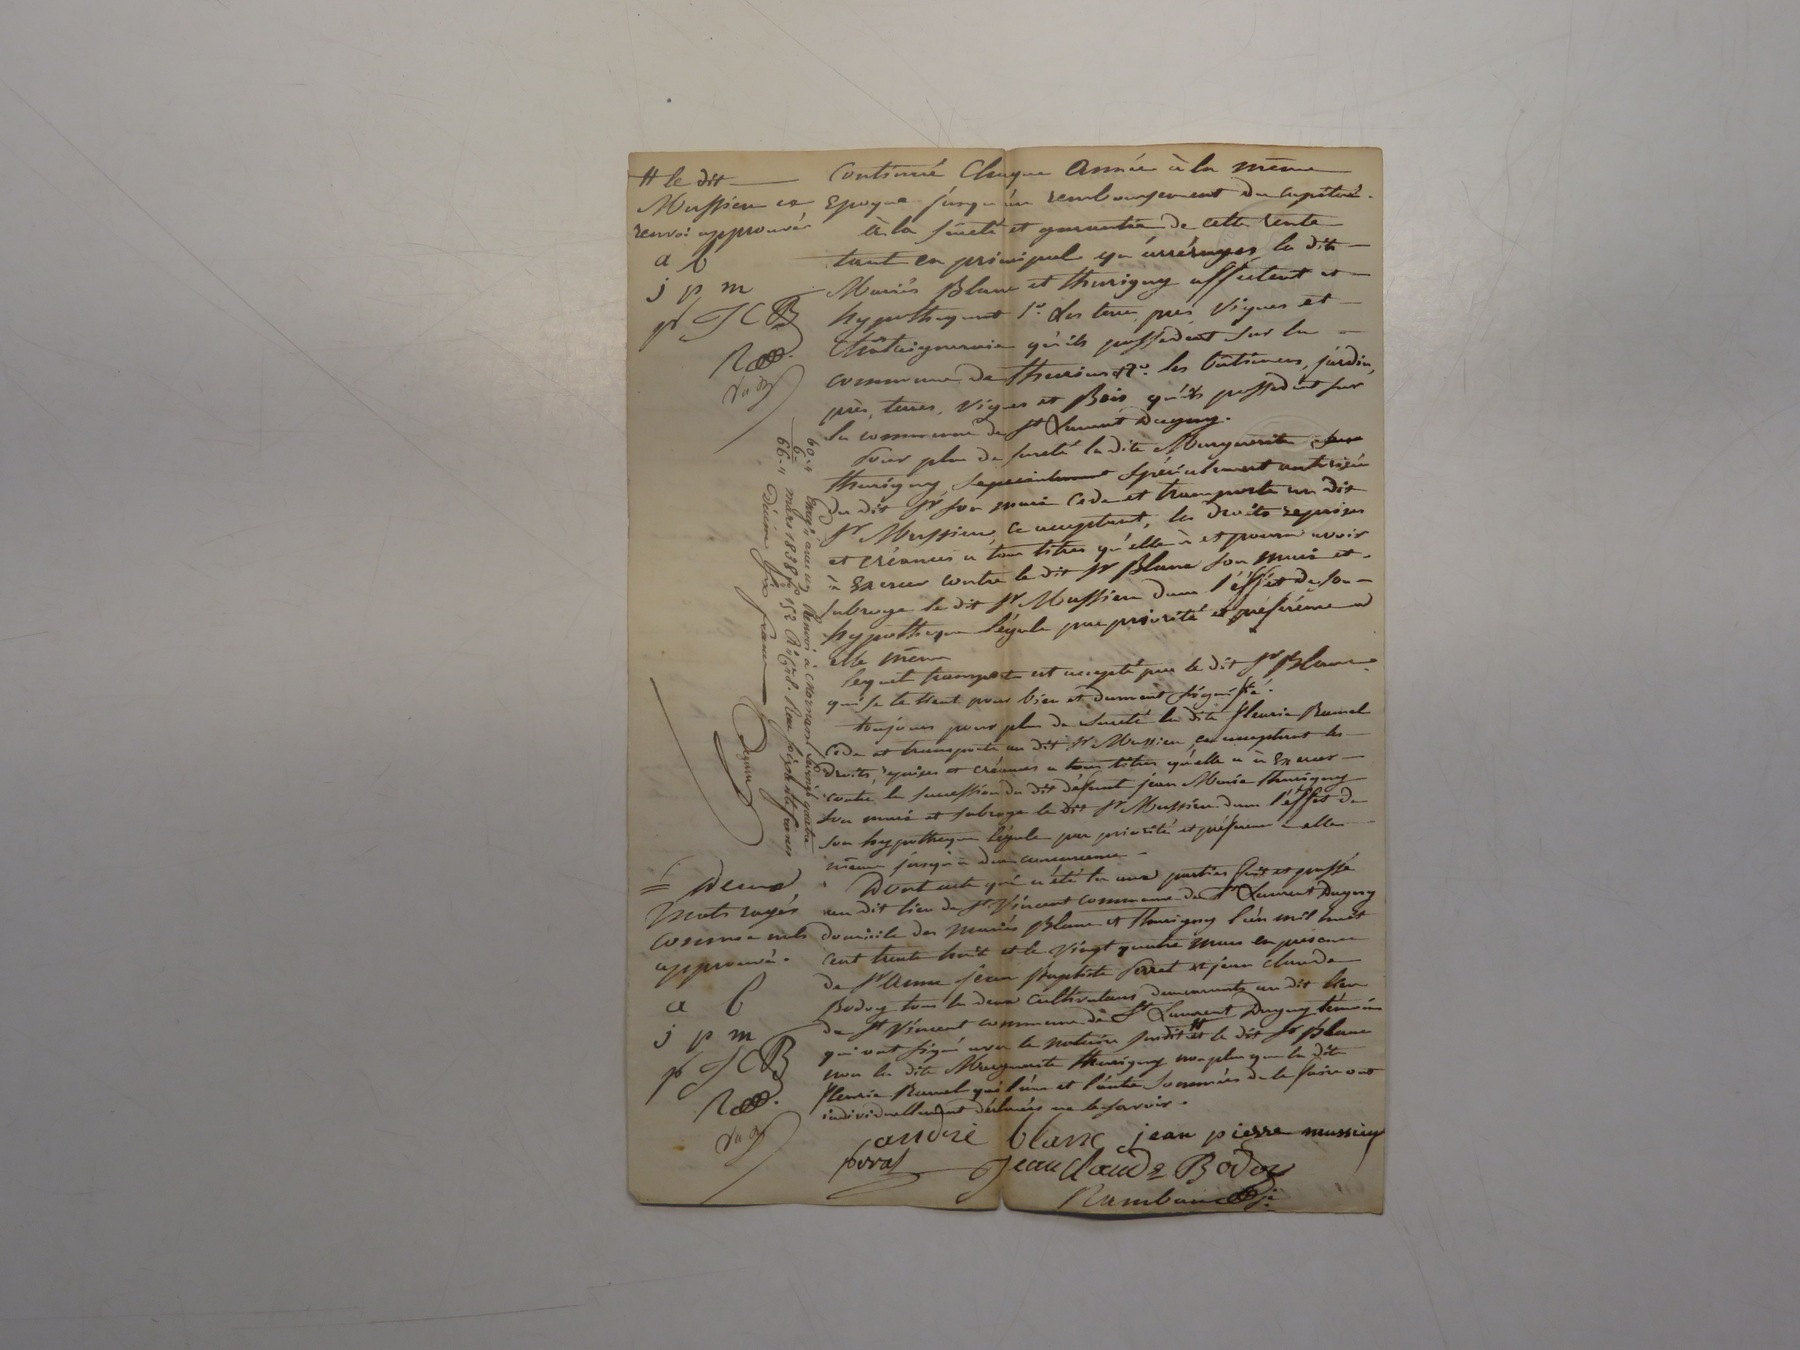 # le dit
Mussieu et
renvoi approuvé
a b
j p m
p J C B
R
continué chaque année à la même
Epoque jusqu'au remboursement du capital.
à la sûreté et garantie de cette rente
tant en principal qu'arrérages, les dits
Mariés Blanc et thurigny affectent et
hypothequent 1º. Les terres, près, vignes et
Châtaigneraie qu'ils possèdent sur la
commune de thurins et 2º. les bâtimens, jardin,
près, terres, vignes et Bois qu'ils possedent sur
la commune de St Laurent Dagny.
Pour plus de sureté la dite Marguerite
thurigny, spécialement autorisée
du dit Sr son mari cède et transporte au dit
Sr Mussieu, ce acceptant, les droits reprises
et créances à tous titres qu'elle a et pourra avoir
à Exercer contre le dit Sr Blanc son mari et
subroge le dit Sr Mussieu dans l'éffet de son
hypotheque légale par priorité et préférence à
elle même
lequel transport est accepté par le dit Sr Blanc
qui se le tient pour bien et dument signifié.
toujours pour plus de sureté la dite fleurie Ramel
cède et transporte au dit Sr Mussieu, ce acceptant les
droits, reprises et créances à tous titres qu'elle a à Exercer
contre la succession du dit défunt jean Marie thurigny
son mari et subroge le dit Sr Mussieu dans l'éffet de
son hypotheque légale par priorité et préference à elle
même jusqu'à due concurrence
Dont acte qui a été lu aux parties fait et passé
au dit lieu de St Vincent commune de St Laurent Dagny
domicile des mariés Blanc et thurigny l'an mil huit
cent trente huit et le vingt quatre mars en présence
de Sr Anne jean Baptiste Perret et jean claude
Bodoy tous les deux cultivateurs demeurants au dit lieu
de St Vincent commune de St Laurent Dagny témoins
qui ont signé avec le notaire susdit # et le dit Sr Blanc
non la dite Marguerite thurigny non plus que la dite
fleurie Ramel qui l'une et l'autre sommées de le faire ont
individuellement déclarés ne le savoir.
60 "
6 "
66 "
mars 1838 fo 152
Décime six francs
= Deux
mots rayés
comme nuls
approuvé.
a b
j p m
p J C B
R
andré blanc jean pierre mussieu
jean claude Bodoy